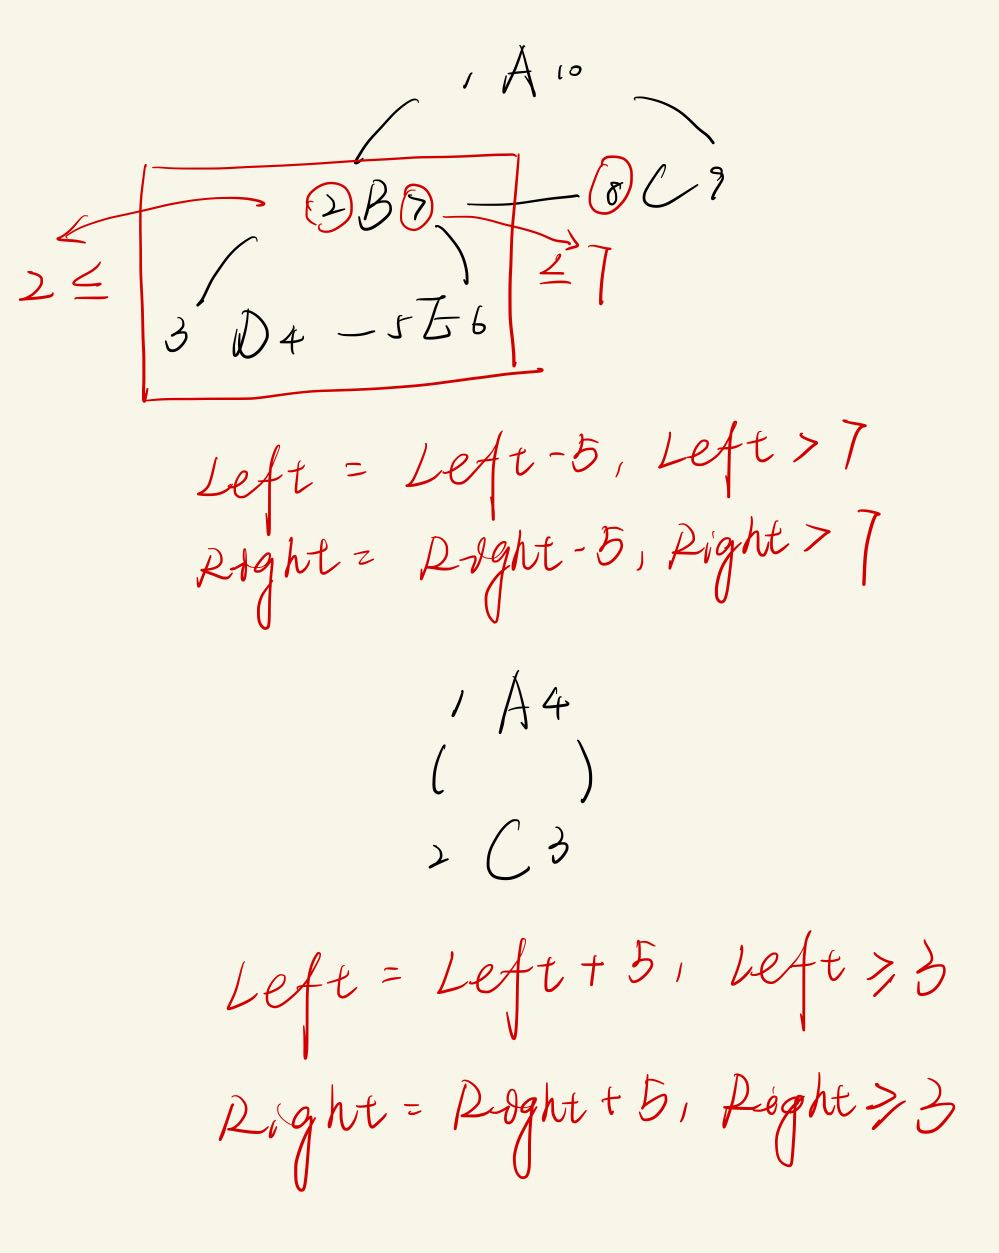 1 A 10
2 B 7 — 8 C 9
2 ≤
≤ 7
3 D 4 — 5 E 6
Left = Left - 5, Left > 7
Right = Right - 5, Right > 7
1 A 4
2 C 3
Left = Left + 5, Left ⩾ 3
Right = Right + 5, Right ⩾ 3